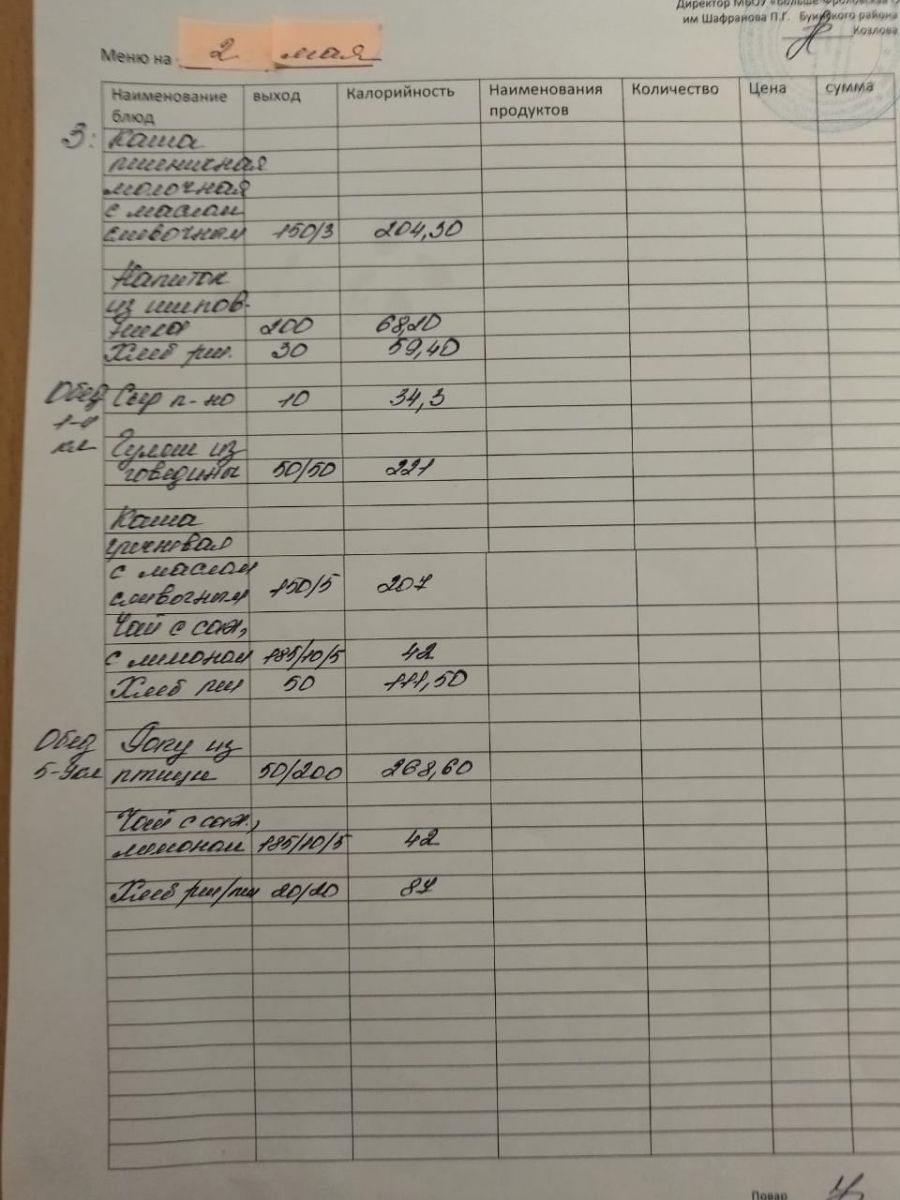 Директор МБОУ «Больше-Фроловская
им Шафранова П.Г. Буинского района
Козлова
Меню на 2 мая
Наименование блюд выход Калорийность Наименования продуктов Количество Цена сумма
З: Каша
пшеничная
молочная
с маслом
сливочным 150/3 204,30
Напиток
из шипов-
ника 200 68,20
Хлеб рж. 30 59,40
Обед Сыр п-но 10 34,3
1-4
кл Гуляш из
говядины 50/50 221
Каша
гречневая
с маслом
сливочным 150/5 207
Чай с сах,
с лимоном 185/10/5 42
Хлеб пш 50 111,50
Обед Рагу из
5-9кл птицы 50/200 268,60
Чай с сах.,
лимоном 185/10/5 42
Хлеб рж/пш 20/20 87
Повар